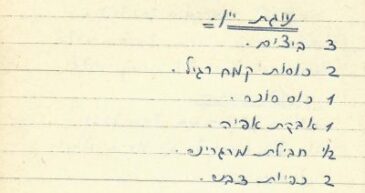 עוגת יין.
3 ביצים.
2 כוסות קמח רגיל.
1 כוס סוכר.
1 אבקת אפיה.
½ חבילת מרגרינה.
2 כפיות דבש.